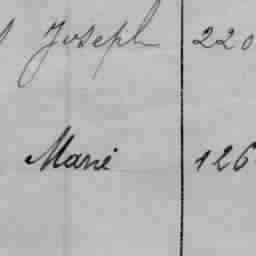 Joseph 220
Marie 126